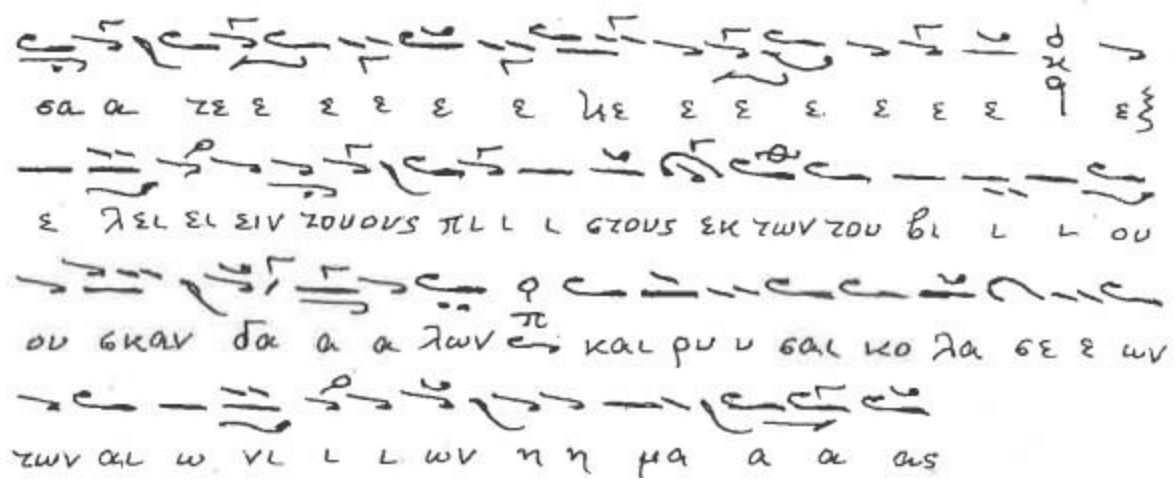 σα α τε ε ε ε ε ε κε ε ε ε ε ε ε εξ
ε λει ει ειν τουους πι ι ι στους εκ των του βι ι ι ου
ου σκαν δα α α λων και ρυ υ σαι κο λα σε ε ων
των αι ω νι ι ι ων η η μα α α ας